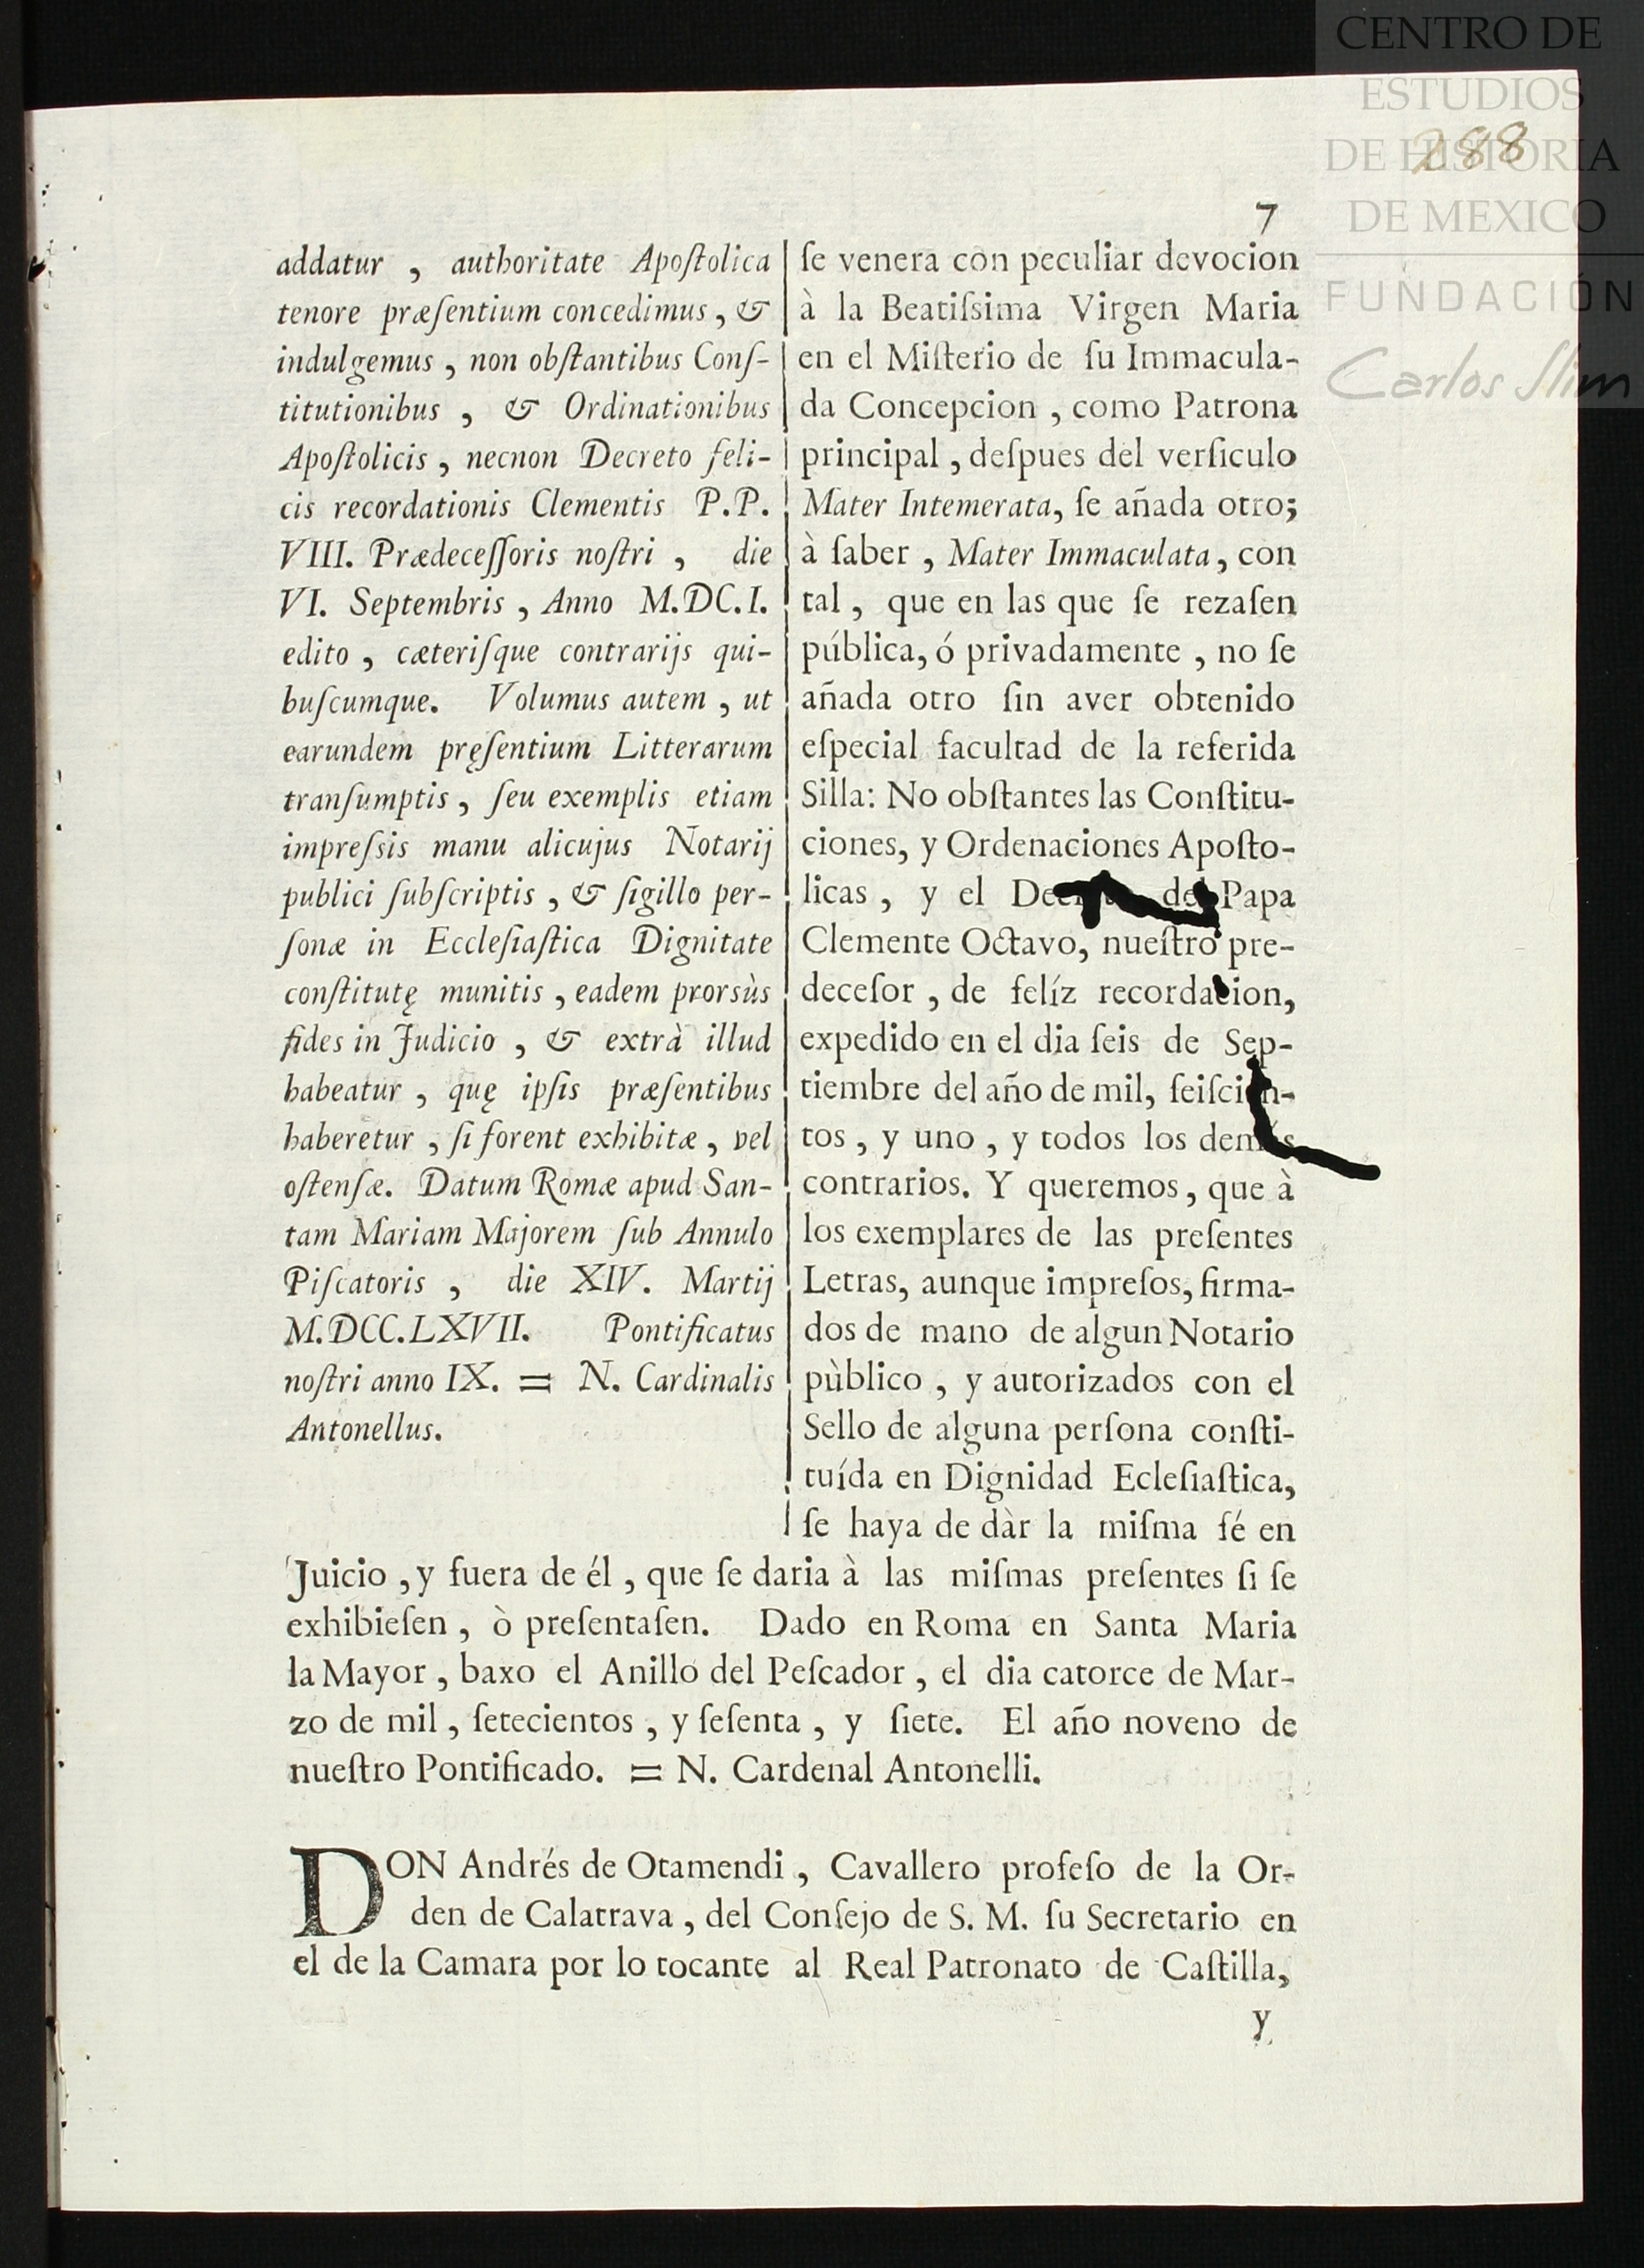 CENTRO DE
ESTUDIOS
DE HISTORIA
DE MEXICO
FUNDACIÓN
Carlos Slim
288
7
addatur , authoritate Apoſtolica
tenore præſentium concedimus , &
indulgemus , non obſtantibus Conſ-
titutionibus , & Ordinationibus
Apoſtolicis , necnon Decreto feli-
cis recordationis Clementis P.P.
VIII. Prædeceſſoris noſtri , die
VI. Septembris , Anno M.DC.I.
edito , cæteriſque contrarijs qui-
buſcumque. Volumus autem , ut
earundem pręſentium Litterarum
tranſumptis , ſeu exemplis etiam
impreſsis manu alicujus Notarij
publici ſubſcriptis , & ſigillo per-
ſonæ in Eccleſiaſtica Dignitate
conſtitutę munitis , eadem prorsùs
fides in Judicio , & extrà illud
habeatur , quę ipſis præſentibus
haberetur , ſi forent exhibitæ , vel
oſtenſæ. Datum Romæ apud San-
tam Mariam Majorem ſub Annulo
Piſcatoris , die XIV. Martij
M.DCC.LXVII. Pontificatus
noſtri anno IX. = N. Cardinalis
Antonellus.
ſe venera con peculiar devocion
à la Beatiſsima Virgen Maria
en el Miſterio de ſu Immacula-
da Concepcion , como Patrona
principal , deſpues del verſiculo
Mater Intemerata, ſe añada otro;
à ſaber , Mater Immaculata, con
tal , que en las que ſe rezaſen
pública, ó privadamente , no ſe
añada otro ſin aver obtenido
eſpecial facultad de la referida
Silla: No obſtantes las Conſtitu-
ciones, y Ordenaciones Apoſto-
licas , y el del Papa
Clemente Octavo, nueſtro pre-
deceſor , de felíz recordacion,
expedido en el dia ſeis de Sep-
tiembre del año de mil, ſeiſcien-
tos , y uno , y todos los demás
contrarios. Y queremos, que à
los exemplares de las preſentes
Letras, aunque impreſos, firma-
dos de mano de algun Notario
pùblico , y autorizados con el
Sello de alguna perſona conſti-
tuída en Dignidad Ecleſiaſtica,
ſe haya de dàr la miſma fé en
Juicio , y fuera de él , que ſe daria à las miſmas preſentes ſi ſe
exhibieſen , ò preſentaſen. Dado en Roma en Santa Maria
la Mayor , baxo el Anillo del Peſcador , el dia catorce de Mar-
zo de mil , ſetecientos , y ſeſenta , y ſiete. El año noveno de
nueſtro Pontificado. = N. Cardenal Antonelli.
DON Andrés de Otamendi , Cavallero profeſo de la Or-
den de Calatrava , del Conſejo de S. M. ſu Secretario en
el de la Camara por lo tocante al Real Patronato de Caſtilla,
y